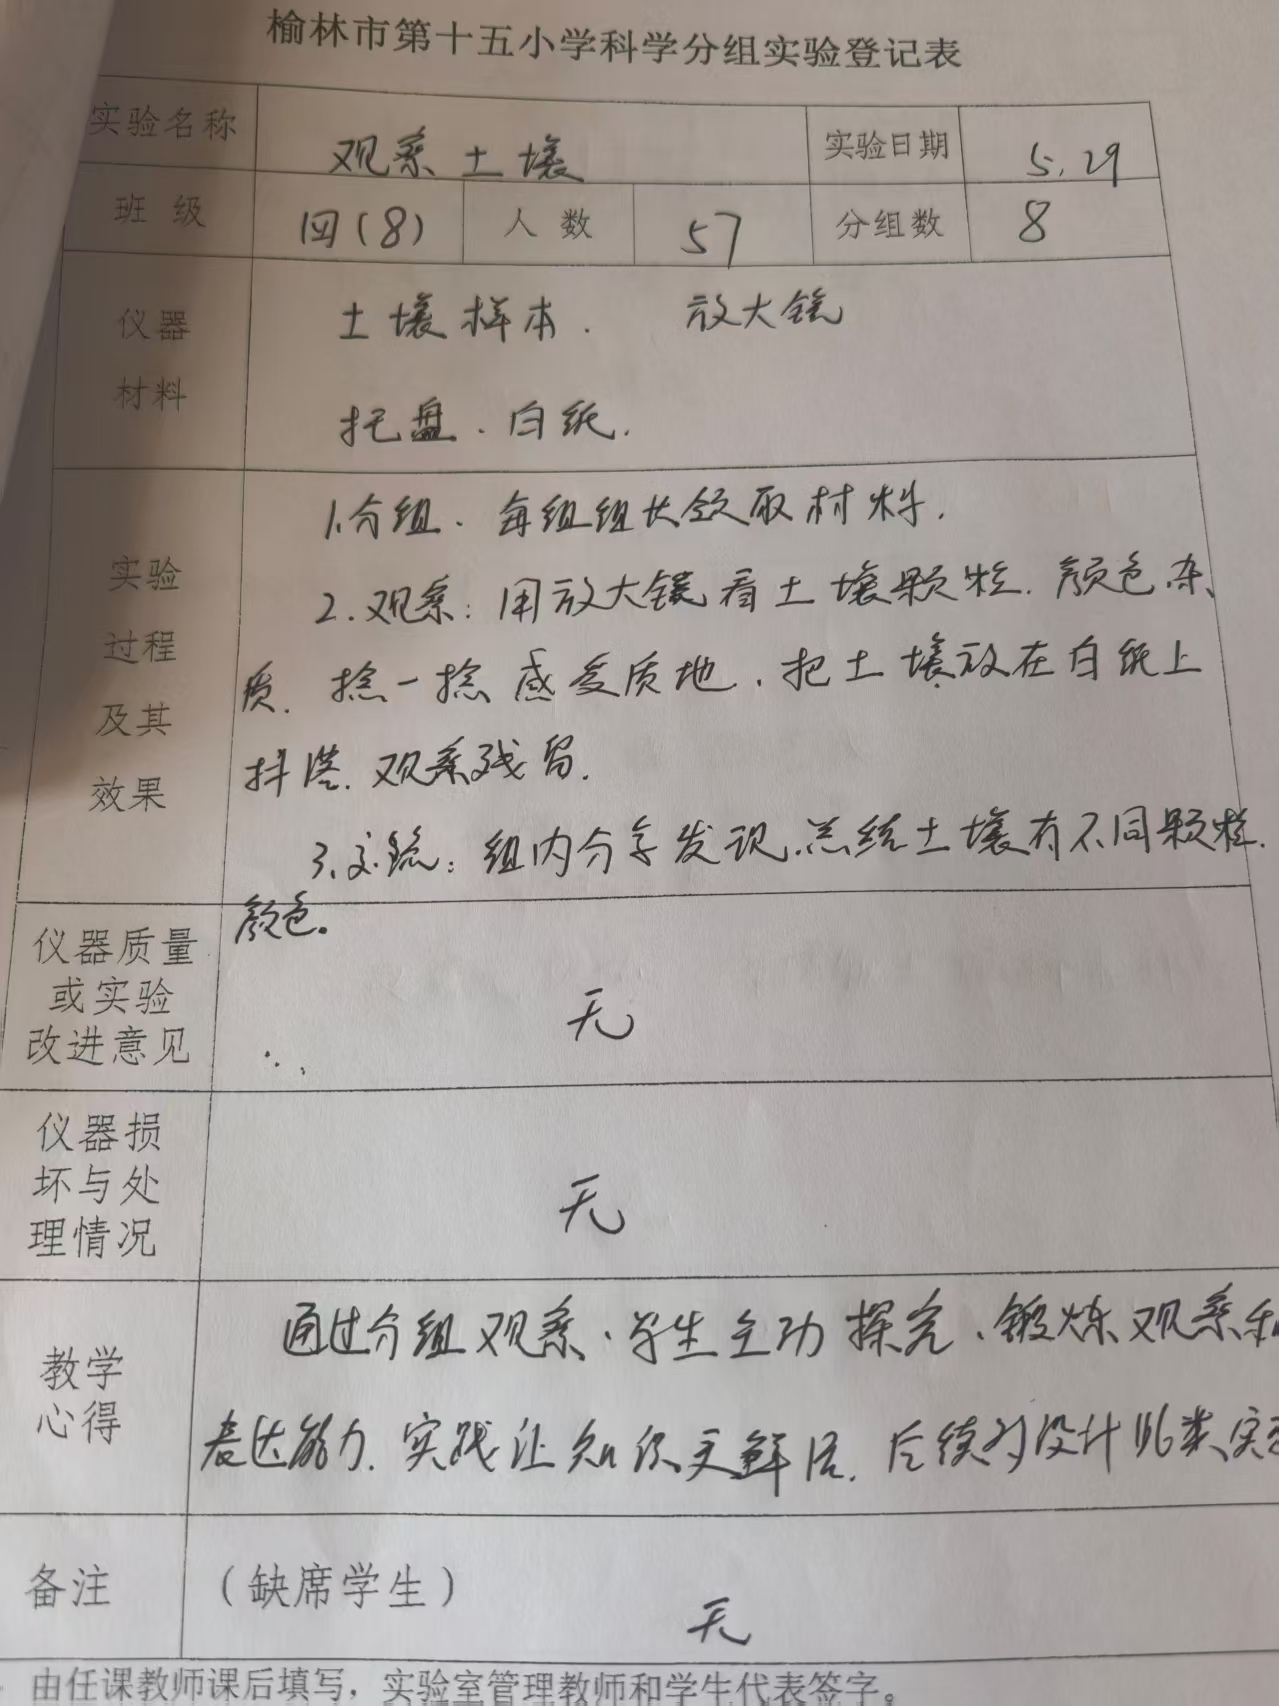 榆林市第十五小学科学分组实验登记表
实验名称 观察土壤 实验日期 5.29
班级 四(8) 人数 57 分组数 8
仪器 土壤样本. 放大镜
材料 托盘.白纸.
1.分组.每组组长领取材料.
实验 2.观察:用放大镜看土壤颗粒.颜色杂、
过程 质.捻一捻感受质地.把土壤放在白纸上
及其
效果 抖落.观察残留.
3.交流:组内分享发现.总结土壤有不同颗粒.
颜色。
仪器质量
或实验 无
改进意见
仪器损
坏与处 无
理情况
通过分组观察.学生主动探究.锻炼观察和
教学
心得 表达能力.实践让知识更鲜活.后续多设计此类实
备注 (缺席学生) 无
由任课教师课后填写，实验室管理教师和学生代表签字。